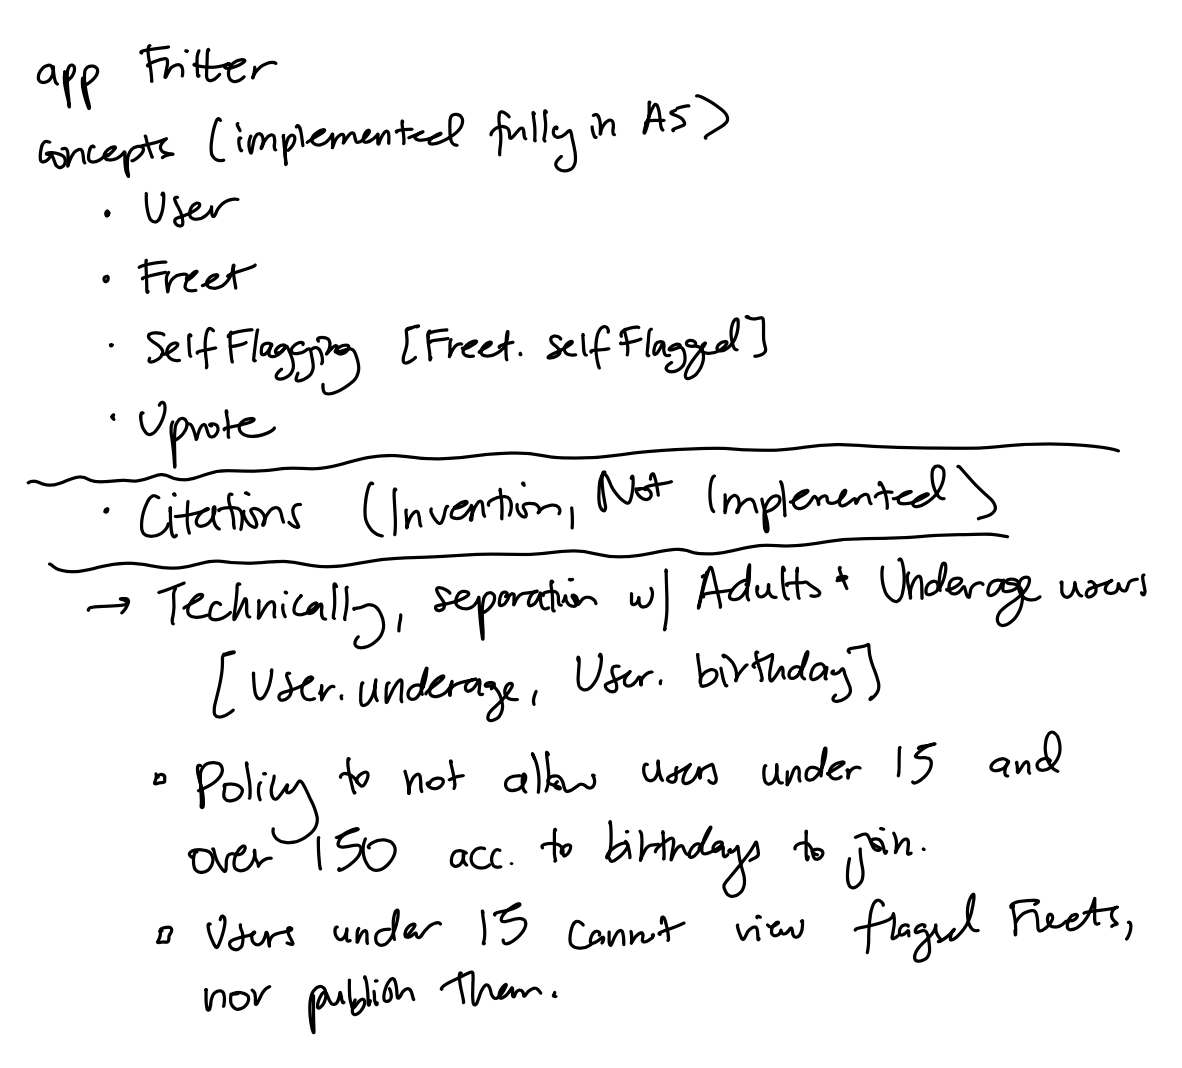 app Fritter
concepts (implemented fully in A5)
· User
· Freet
· SelfFlagging [Freet. selfFlagged]
· Upvote
· Citations (Invention, Not Implemented)
→ Technically, separation w/ Adults + Underage users
[User.underage, User. birthday]
▫ Policy to not allow users under 15 and
over 150 acc. to birthdays to join.
▫ Users under 15 cannot view flagged Freets,
nor publish them.